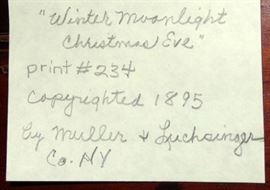 "Winter Moonlight
Christmas Eve"
print #234
Copyrighted 1895
by Muller & Luchsinger
Co. NY